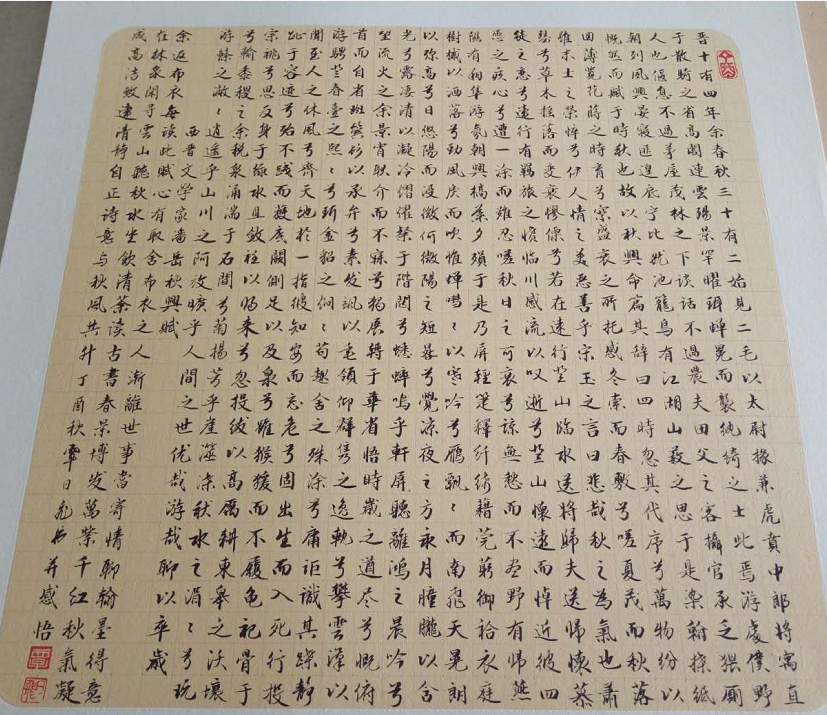 晉十有四年余春秋三十有二始見二毛以太尉掾兼虎賁中郎將寓直
于散騎之省高閣連雲陽景罕曜珥蟬冕而襲紈綺之士此焉游處僕野
人也偃息不過茅屋茂林之下談話不過農夫田父之客攝官承乏猥廁
朝列夙興晏寢匪遑底寧比池魚籠鳥有江湖山藪之思于是染翰操紙
慨然而賦于時秋也故以秋興命篇其辭曰四時忽其代序兮萬物紛以
回薄覽花蒔之時育兮察盛衰之所托感冬索而春敷兮嗟夏茂而秋落
雖末士之榮悴兮伊人情之美惡善乎宗玉之言曰悲哉秋之為氣也蕭
瑟兮草木搖落而變衰憭慄兮若在遠行登山臨水送將歸夫送歸懷慕
徒之戀兮遠行有羈旅之憤臨川感流以嘆逝兮登山懷遠而悼近彼四
慼之疚心兮遭一塗而難忍嗟秋日之可哀兮諒無愁而不盡野有歸燕
隰有翔隼游氛朝興槁葉夕殞于是乃屏輕箑釋纖絺藉莞蒻御袷衣庭
樹槭以洒落兮勁風戾而吹帷蟬嘒嘒以寒吟兮雁飄飄而南飛天晃朗
以彌高兮日悠陽而浸微何微陽之短晷兮覺涼夜之方永月朣朧以含
光兮露凄清以凝冷熠燿粲于階闥兮蟋蟀鳴乎軒屏聽離鴻之晨吟兮
望流火之余景宵耿介而不寐兮獨展轉于華省悟時歲之遒盡兮慨俯
首而自省斑鬢髟以承弁兮素髮颯以垂領仰群雋之逸軌兮攀雲漢以
游騁登春臺之熙熙兮珥金貂之炯炯苟趣舍之殊塗兮庸詎識其躁靜
聞至人之休風兮齊天地於一指彼知安而忘危兮固出生而入死行投
趾于容迹兮殆不踐而獲底闕側足以及泉兮雖猴猿而不履龜祀骨于
宗祧兮思反身于綠水且斂衽以歸來兮忽投紱以高厲耕東皋之沃壤
兮輸黍稷之余稅泉涌湍于石間兮菊揚芳乎崖澨澡秋水之涓涓兮玩
游鯈之潎潎逍遙乎山川之阿放曠乎人間之世优哉游哉聊以卒歲
西晉文學家潘岳秋興賦
余返布衣每讀此賦心有取舍布衣之人漸離世事當寄情聊翰墨得意
仕林象閑尋雲山聽秋水坐飲清茶談古書春景博發萬紫千紅秋氣凝
成高潔致遠清靜自正詩意与秋風共升丁酉秋日書并感悟